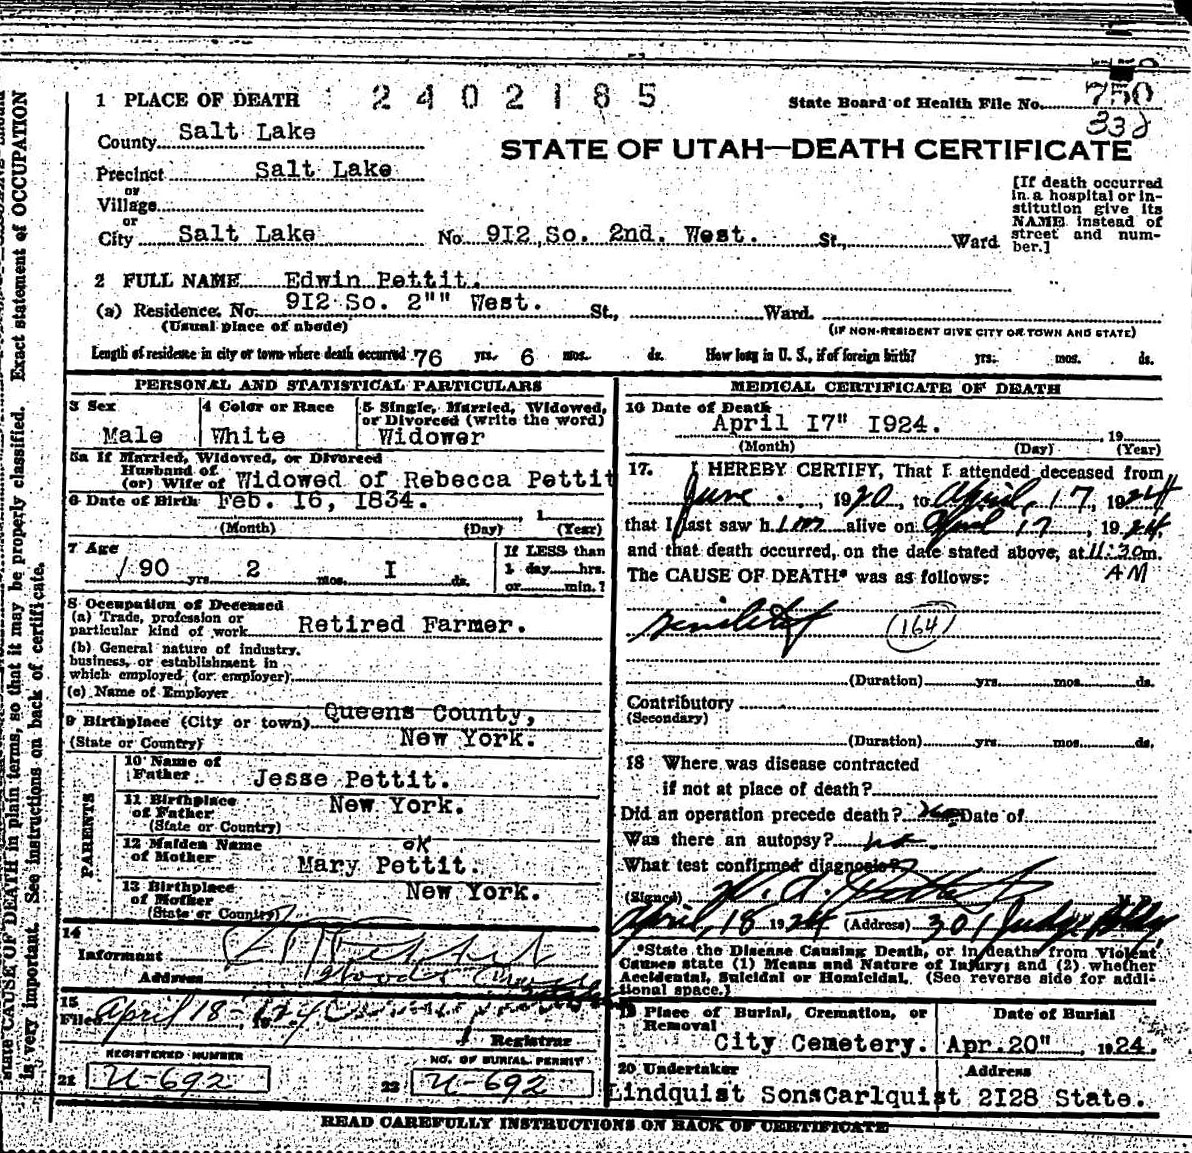 1 PLACE OF DEATH 2402185
State Board of Health File No. 750
338
County Salt Lake
STATE OF UTAH—DEATH CERTIFICATE
Precinct Salt Lake
or
Village
or
City Salt Lake No. 9I2 So. 2nd. West. St., Ward
[If death occurred
in a hospital or in-
stitution give its
NAME instead of
street and num-
ber.]
2 FULL NAME Edwin Pettit.
(a) Residence. No. 9I2 So. 2"" West. St., Ward.
(Usual place of abode) (IF NON-RESIDENT GIVE CITY OR TOWN AND STATE)
Length of residence in city or town where death occurred 76 yrs. 6 mos. ds. How long in U. S., if of foreign birth? yrs. mos. ds.
PERSONAL AND STATISTICAL PARTICULARS
3 Sex
Male
4 Color or Race
White
5 Single, Married, Widowed,
or Divorced (write the word)
Widower
5a If Married, Widowed, or Divorced
Husband of
(or) Wife of Widowed of Rebecca Pettit
6 Date of Birth Feb. I6, I834.
, 1
(Month) (Day) (Year)
7 Age
90 yrs. 2 mos. I ds.
If LESS than
1 day hrs.
or min.?
8 Occupation of Deceased
(a) Trade, profession or
particular kind of work Retired Farmer.
(b) General nature of industry,
business, or establishment in
which employed (or employer)
(c) Name of Employer
9 Birthplace (City or town) Queens County,
(State or Country) New York.
PARENTS
10 Name of
Father Jesse Pettit.
11 Birthplace
of Father New York.
(State or Country)
12 Maiden Name OK
of Mother Mary Pettit.
13 Birthplace
of Mother New York.
(State or Country)
14
Informant
Address Woods
15
Filed April 18-24
Registrar
REGISTERED NUMBER
21 U-692
NO. OF BURIAL PERMIT
22 U-692
MEDICAL CERTIFICATE OF DEATH
16 Date of Death
April I7" I924.
, 19
(Month) (Day) (Year)
17. I HEREBY CERTIFY, That I attended deceased from
June , 1920, to April, 17, 1924
that I last saw him alive on April 17, 1924,
and that death occurred, on the date stated above, at 11:30m.
The CAUSE OF DEATH* was as follows: AM
Senility 164
(Duration) yrs. mos. ds.
Contributory
(Secondary)
(Duration) yrs. mos. ds.
18 Where was disease contracted
if not at place of death?
Did an operation precede death? No Date of
Was there an autopsy? no
What test confirmed diagnosis?
(Signed)
April, 18 1924 (Address) 301 Judge Bldg,
*State the Disease Causing Death, or in deaths from Violent
Causes state (1) Means and Nature of Injury; and (2) whether
Accidental, Suicidal or Homicidal. (See reverse side for addi-
tional space.)
19 Place of Burial, Cremation, or
Removal
City Cemetery.
Date of Burial
Apr.20" , 1924.
20 Undertaker
Lindquist SonsCarlquist
Address
2I28 State.
READ CAREFULLY INSTRUCTIONS ON BACK OF CERTIFICATE
state CAUSE OF DEATH in plain terms, so that it may be properly classified. Exact statement of OCCUPATION
is very important. See instructions on back of certificate.